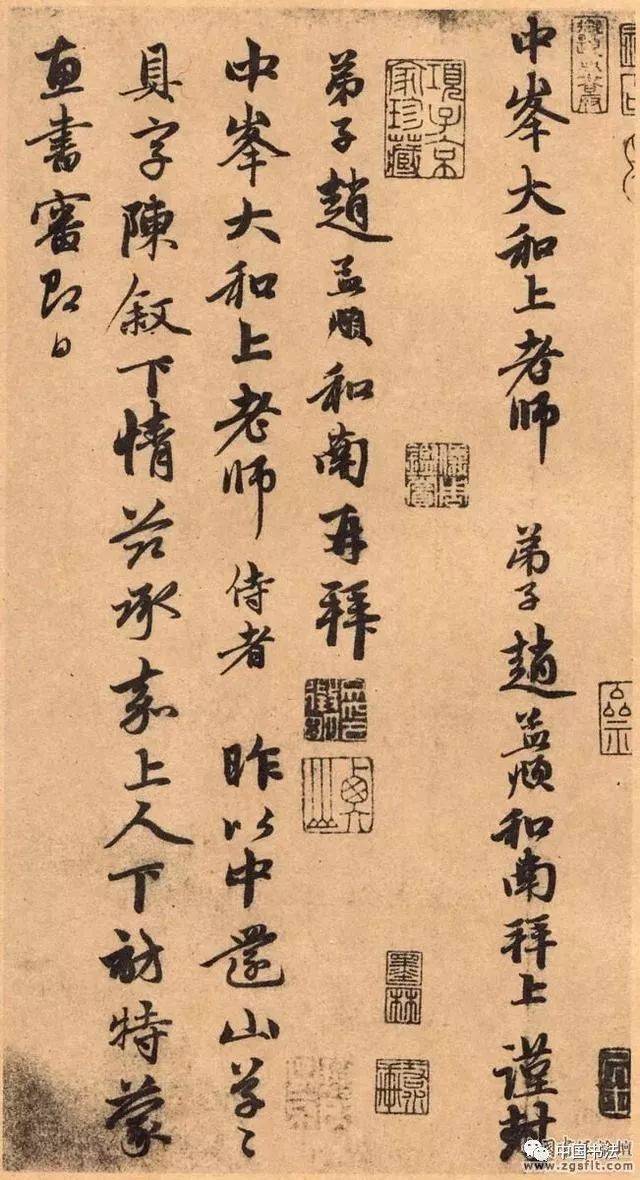 中峯大和上老師 弟子趙孟頫和南拜上 謹封
弟子趙孟頫和南再拜
中峯大和上老師侍者 昨以中還山草〻
具字陳敘下情茲承嘉上人下訪特蒙
惠書審即日
項子京
家珍藏
墨林
中国书法
www.zgsflt.com